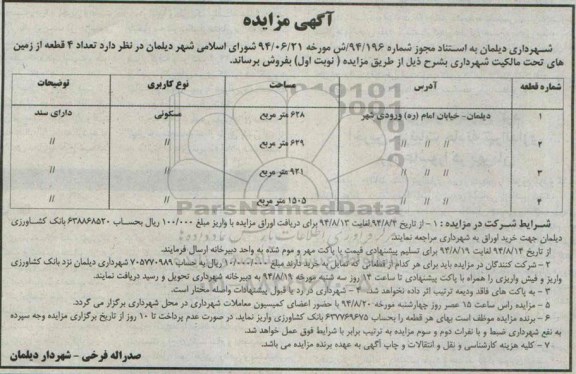 آگهی مزایده
شهرداری دیلمان به استناد مجوز شماره ۹۴/۱۹۶/ش مورخه ۹۴/۰۶/۲۱ شورای اسلامی شهر دیلمان در نظر دارد تعداد ۴ قطعه از زمین
های تحت مالکیت شهرداری بشرح ذیل از طریق مزایده ( نوبت اول) بفروش برساند.
شماره قطعه آدرس مساحت نوع کاربری توضیحات
۱ دیلمان- خیابان امام (ره) ورودی شهر ۶۲۸ متر مربع مسکونی دارای سند
۲ // // // ۶۲۹ متر مربع // //
۳ // // // ۹۲۱ متر مربع // //
۴ // // // ۱۵۰۵ متر مربع // //
ParsNamadData
شرایط شرکت در مزایده : ۱ - از تاریخ ۹۴/۸/۴ لغایت ۹۴/۸/۱۳ برای دریافت اوراق مزایده با واریز مبلغ ۱۰۰/۰۰۰ ریال بحساب ۶۳۸۸۶۸۵۲۰ بانک کشاورزی
دیلمان جهت خرید اوراق به شهرداری مراجعه نمایند.
از تاریخ ۹۴/۸/۱۴ لغایت ۹۴/۸/۱۹ برای تسلیم پیشنهادی قیمت با پاکت مهر و موم شده به واحد دبیرخانه ارسال فرمایند.
۲- شرکت کنندگان در مزایده باید برای هر کدام از قطعاتی که تمایل به خرید دارند مبلغ ریال به حساب ۷۰۵۷۷۰۹۸۹ شهرداری دیلمان نزد بانک کشاورزی
واریز و فیش واریزی را همراه با پاکت پیشنهادی تا ساعت ۱۴ روز سه شنبه مورخه ۹۴/۸/۱۹ به دبیرخانه شهرداری تحویل و رسید دریافت نمایند.
۳ - به پاکت های فاقد ودیعه ترتیب اثر داده نخواهد شد. ۴ - شهرداری در رد یا قبول پیشنهادات واصله مختار است.
۵ - مزایده راس ساعت ۱۵ عصر روز چهارشنبه مورخه ۹۴/۸/۲۰ با حضور اعضای کمیسیون معاملات شهرداری در محل شهرداری برگزار می گردد.
۶ - برنده مزایده موظف است بهای هر قطعه را بحساب ۶۳۷۷۶۹۶۷۵ بانک کشاورزی واریز نماید. در صورت عدم پرداخت تا ۱۰ روز از تاریخ برگزاری مزایده وجه سپرده
به نفع شهرداری ضبط و با نفرات دوم و سوم مزایده به ترتیب برابر با شرایط فوق عمل خواهد شد.
۷ - کلیه هزینه کارشناسی و نقل و انتقالات و چاپ آگهی به عهده برنده مزایده می باشد.
صدراله فرخی - شهردار دیلمان